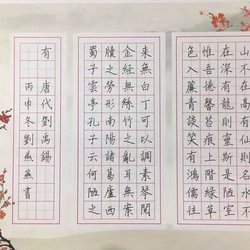 山不在高有仙則名水不
在深有龍則靈斯是陋室
惟吾德馨苔痕上階綠草
色入簾青談笑有鴻儒往
來無白丁可以調素琴閱
金經無絲竹之亂耳無案
牘之勞形南陽諸葛廬西
蜀子雲亭孔子云何陋之
有 唐代劉禹錫
丙申冬劉燕燕書